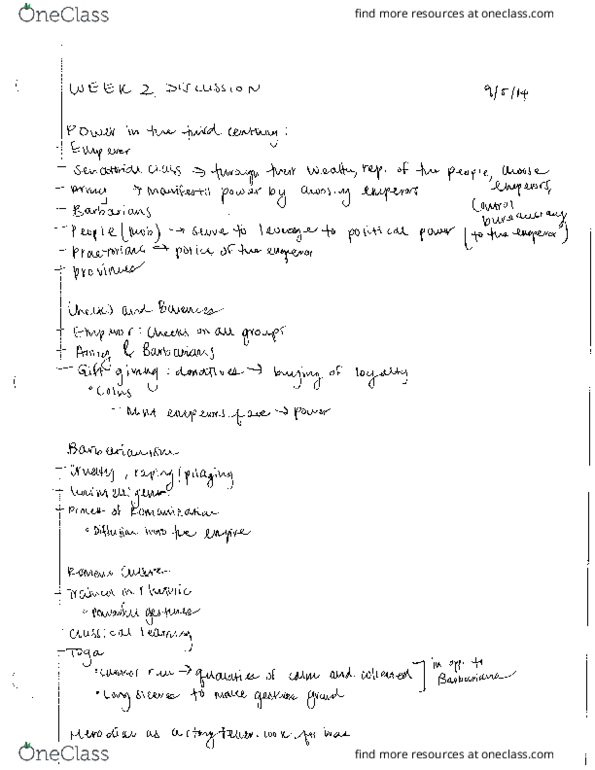 OneClass
find more resources at oneclass.com
WEEK 2 DISCUSSION 9/5/14
Power in the third century:
- Emperor
- Senatorial class → through their wealth, rep. of the people, choose emperors, control bureaucracy (to the emperor)
- Army → manifests power by choosing emperors
- Barbarians
- People (mob) → serve to leverage to political power
- Praetorians → police of the emperor
- provinces
Checks and Balances
- Emperor: checks on all groups
- Army & Barbarians
- Gift giving: donatives → buying of loyalty
• Coins
- Mint emperors face → power
Barbarianism
- cruelty, raping/pillaging
- Unintelligent
- Process of Romanization
• Diffusion into the empire
Romano Culture
- Trained in rhetoric
• Powerful gestures
Classical learning
- Toga
• → qualities of calm and collected
• Long sleeves to make gestures grand
in opp. to Barbarians
Herodian as a storyteller look for bias
OneClass
find more resources at oneclass.com